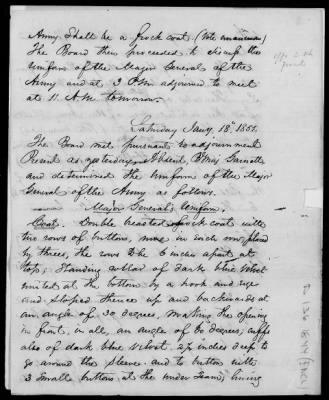 Army shall be a frock coat. (Vote unanimous)
The Board then proceeded to discuss the
uniform of the Major General of the
Army and at 3 P.M. adjourned to meet
at 11 A.M. tomorrow.
Saturday Jany. 18th 1851.
The Board met pursuant to adjournment
Present as yesterday Absent Bt Maj Garnett
and determined the Uniform of the Major
General of the Army as follows.
Major General's Uniform.
Coat. Double breasted frock coat with
two rows of buttons, nine in each row, placed
by threes, the rows to be 6 inches apart at
top; Standing collar of dark blue velvet
united at the bottom by a hook and eye
and sloped thence up and backwards at
an angle of 30 degrees, making the opening
in front, in all, an angle of 60 degrees; cuffs
also of dark blue velvet inches deep to
go around the sleeve and to button with
3 small buttons at the under seam, lining